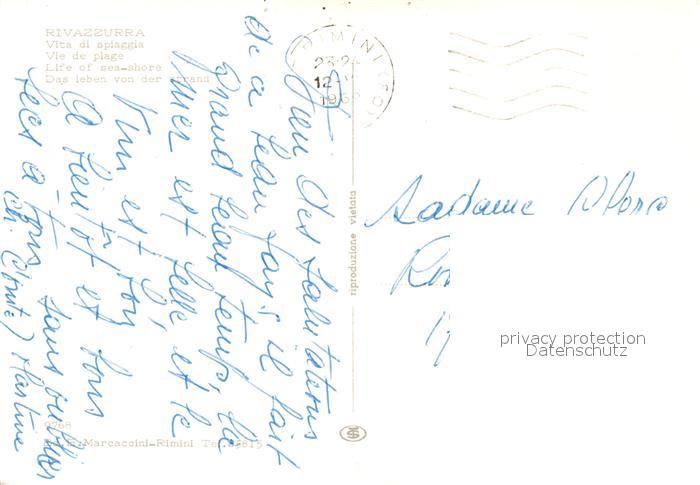 RIVAZZURRA
Vita di spiaggia
Vie de plage
Life of sea-shore
Das leben von der strand
RIMINI
23-24
12
196
Bien des salutations
de ce beau pays il fait
grand beau temps, la
mer est belle et le
vin est bon
A bientôt et bons
à tous sans oublier
Martine
Madame
riproduzione vietata
9768
Marcaccini-Rimini Tel. 23815
privacy protection
Datenschutz